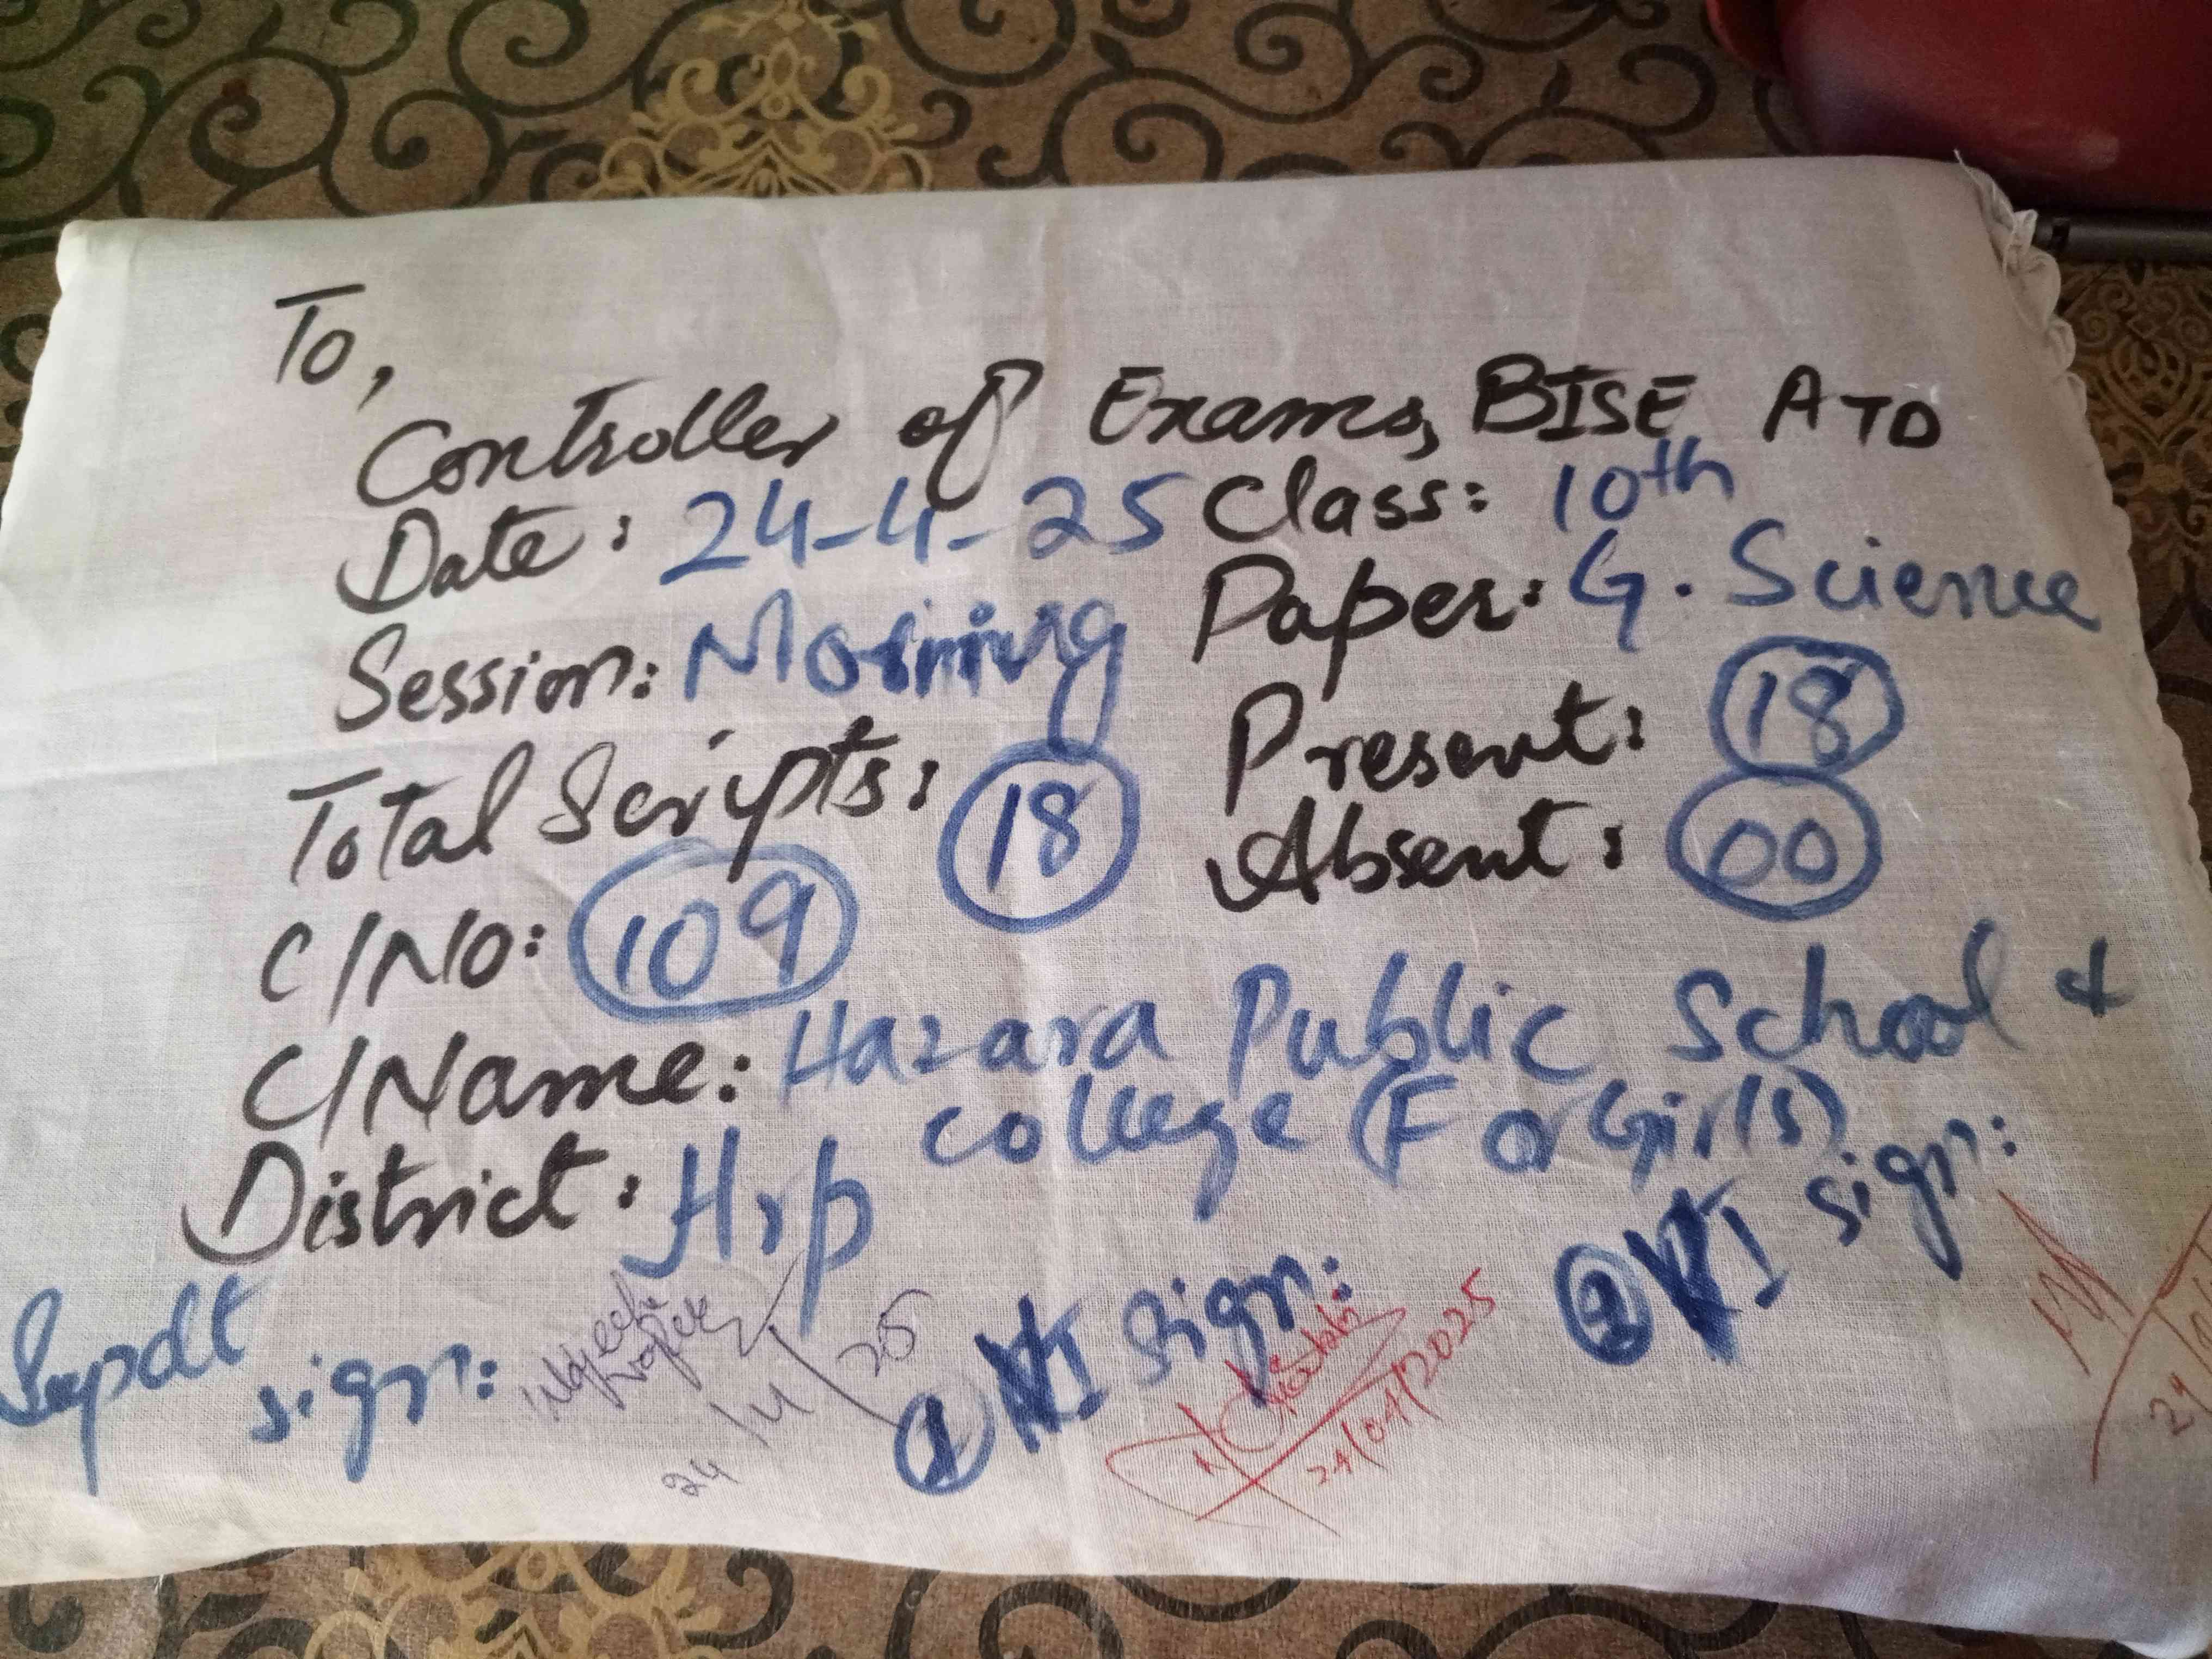 To,
Controller of Exams, BISE ATD
Date: 24-4-25 Class: 10th
Session: Morning Paper: G. Science
Total Scripts: 18 Present: 18
Absent: 00
C/NO: 109
C/Name: Hazara Public School &
College (For Girls)
District: Hrp
Supdt sign:
24/4/25
1 VI sign:
24/04/2025
2 VI sign: